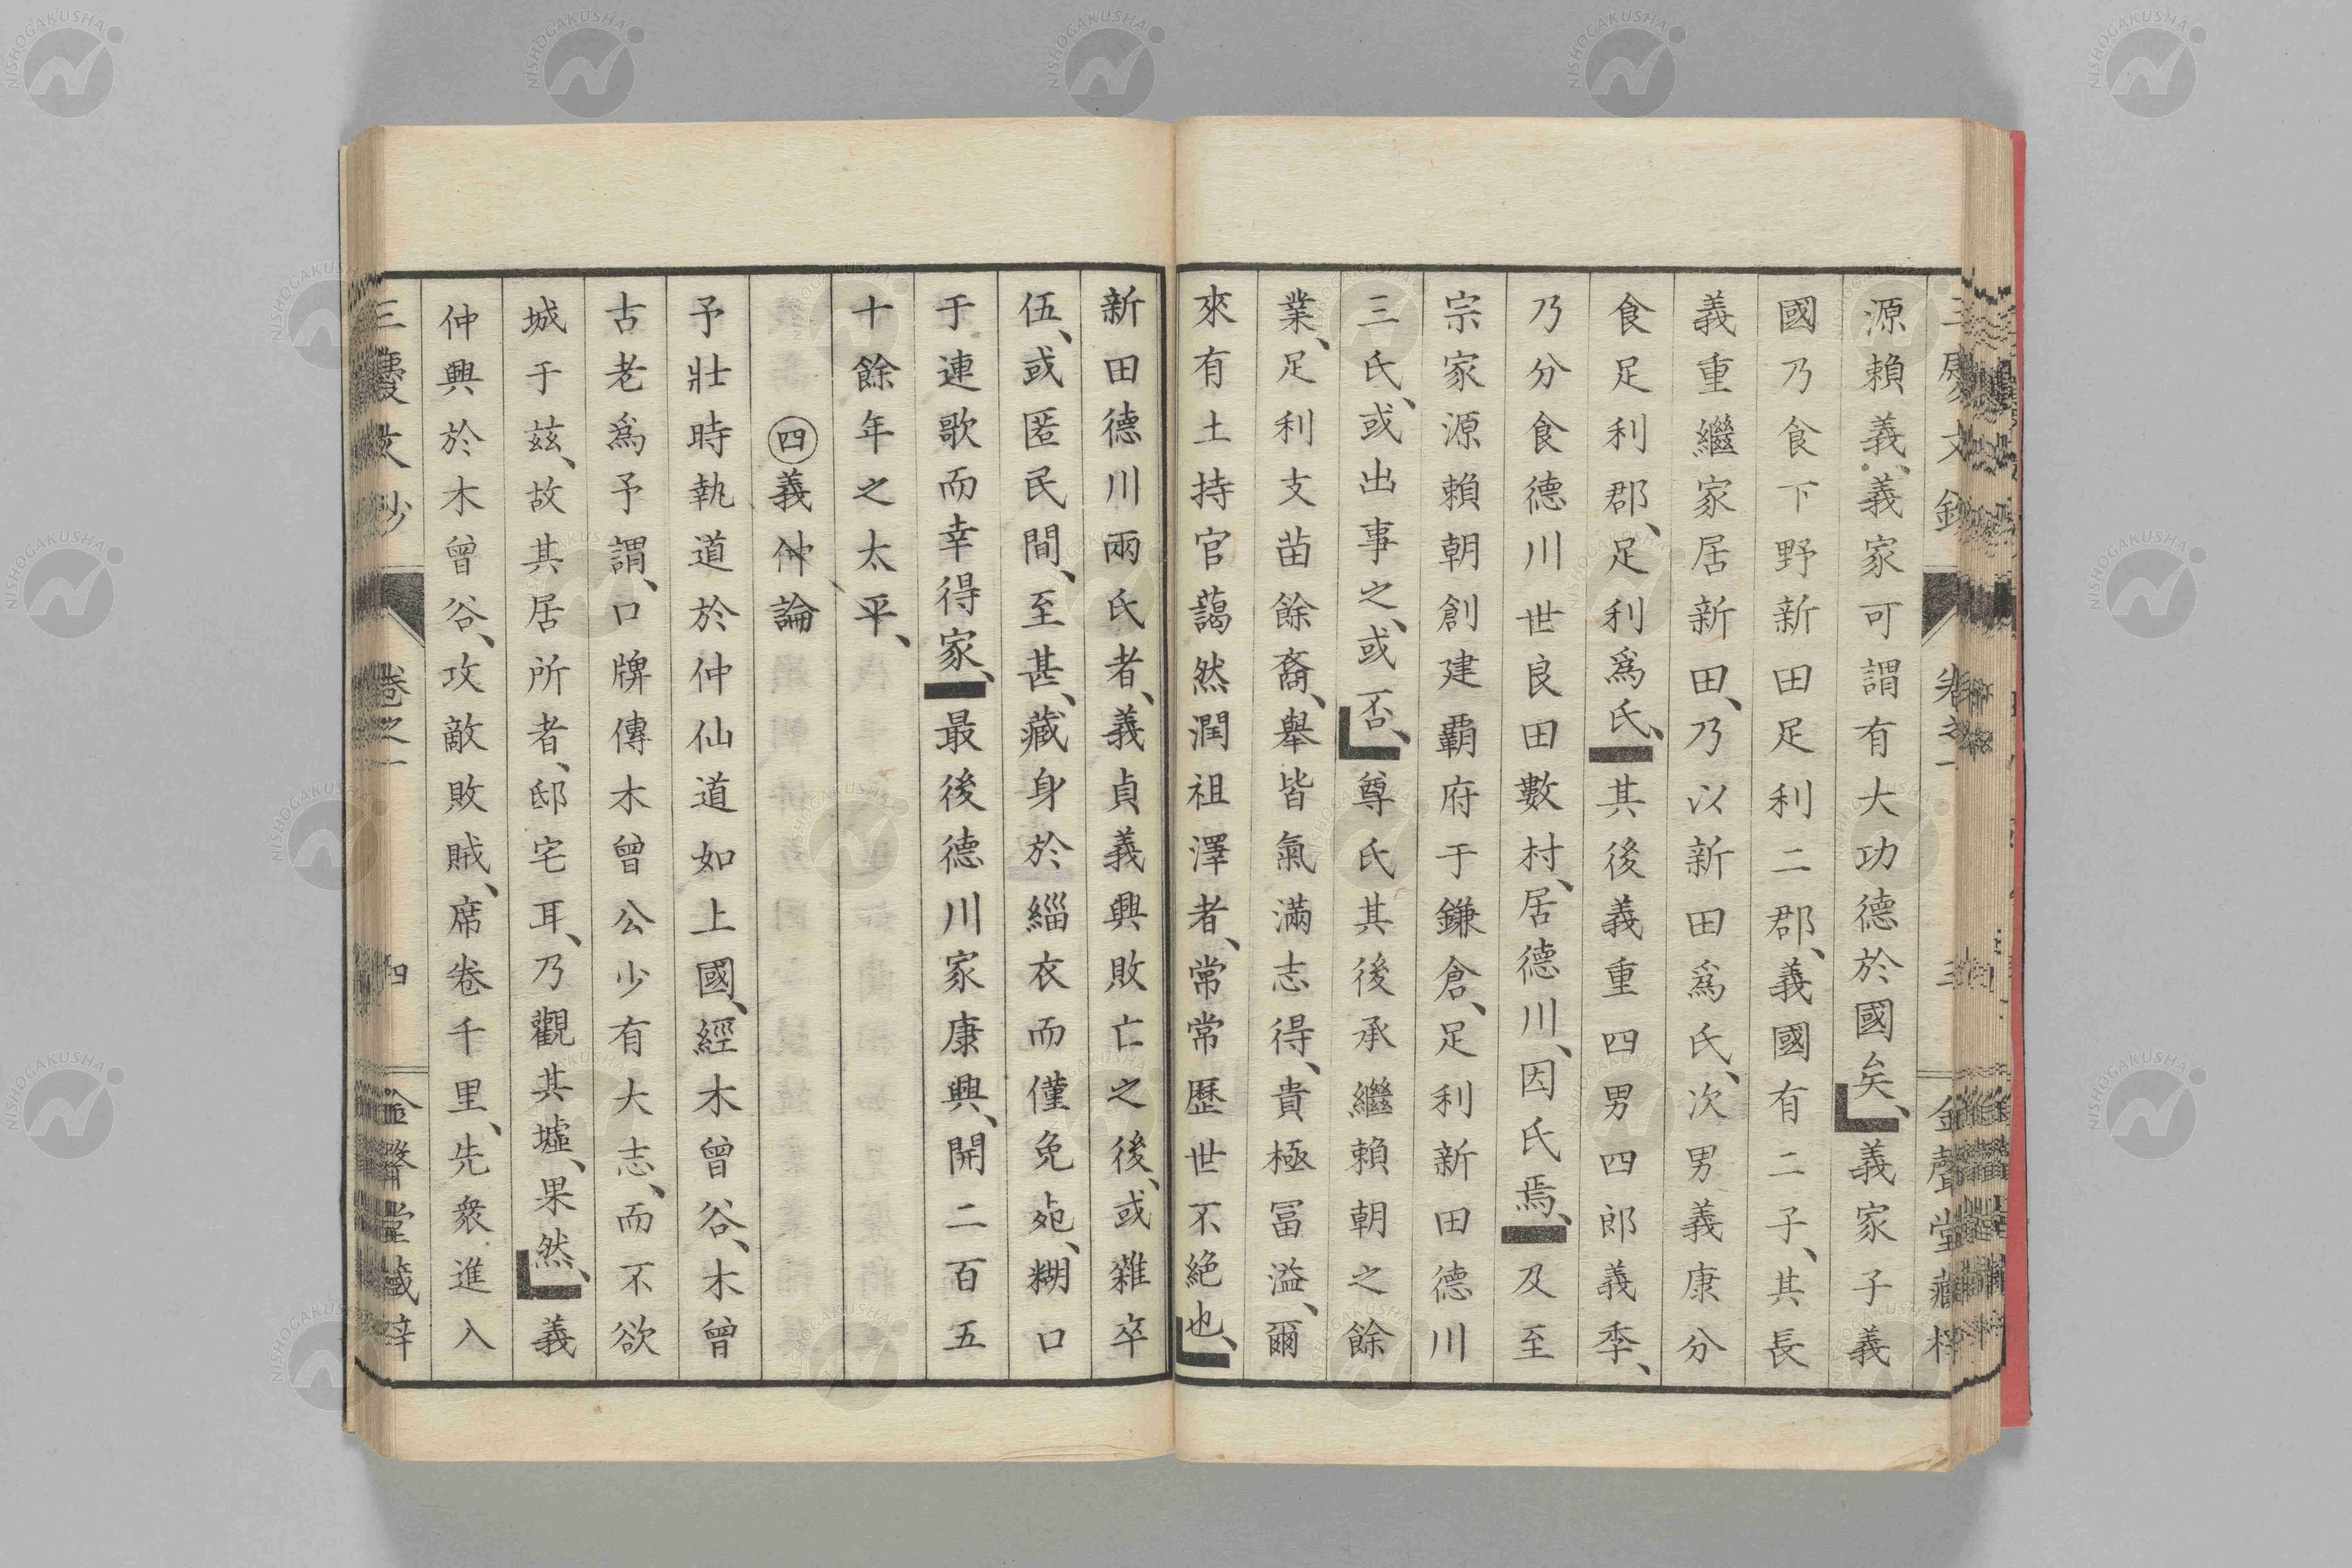 源賴義、義家可謂有大功德於國矣、義家子義
國乃食下野新田足利二郡、義國有二子、其長
義重繼家居新田、乃以新田爲氏、次男義康分
食足利郡、足利爲氏、其後義重四男四郎義季、
乃分食德川世良田數村、居德川、因氏焉、及至
宗家源賴朝創建覇府于鎌倉、足利新田德川
三氏、或出事之、或否、尊氏其後承繼賴朝之餘
業、足利支苗餘裔、舉皆氣滿志得、貴極冨溢、爾
來有土持官藹然潤祖澤者、常常歷世不絕也、
新田德川兩氏者、義貞義興敗亡之後、或雜卒
伍、或匿民間、至甚、藏身於緇衣而僅免死、糊口
于連歌而幸得家、最後德川家康興、開二百五
十餘年之太平、
四義仲論
予壯時執道於仲仙道如上國、經木曾谷、木曾
古老爲予謂、口牌傳木曾公少有大志、而不欲
城于茲、故其居所者、邸宅耳、乃觀其墟、果然、義
仲興於木曾谷、攻敵敗賊、席卷千里、先衆進入
三慶文鈔 卷之一 四 金聲堂藏梓
NISHOGAKUSHA